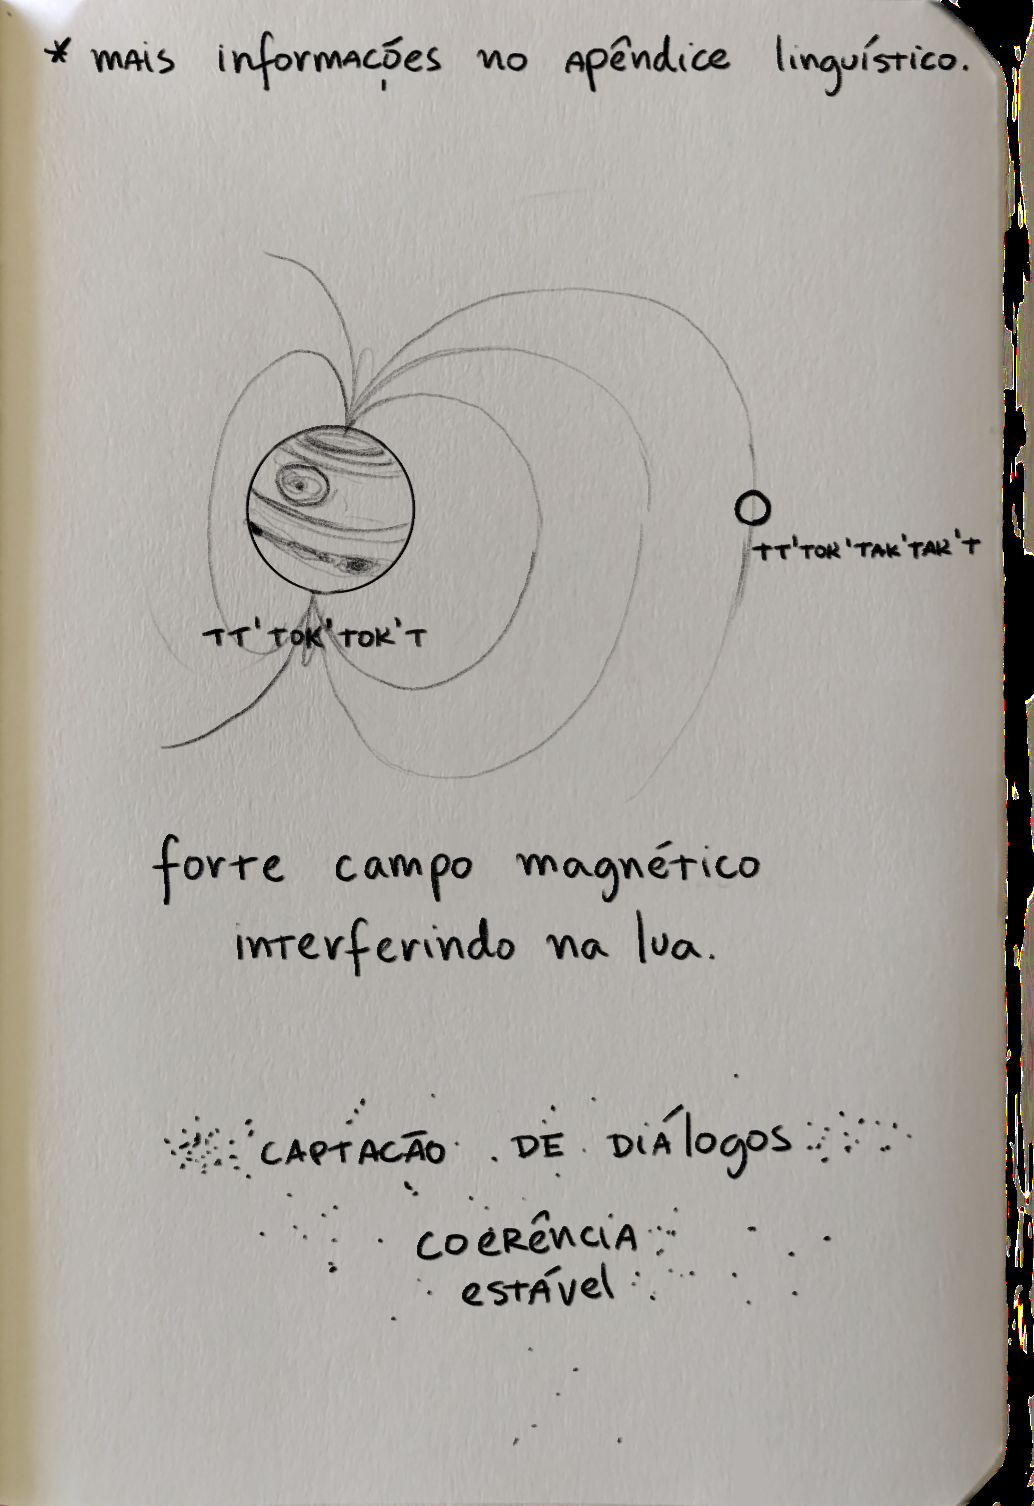 * mais informações no apêndice linguístico.
TT'TOK'TAK'TAK'T
TT'TOK'TOK'T
forte campo magnético
interferindo na lua.
CAPTACÃO DE DIÁlogos
COERÊNCIA
estável